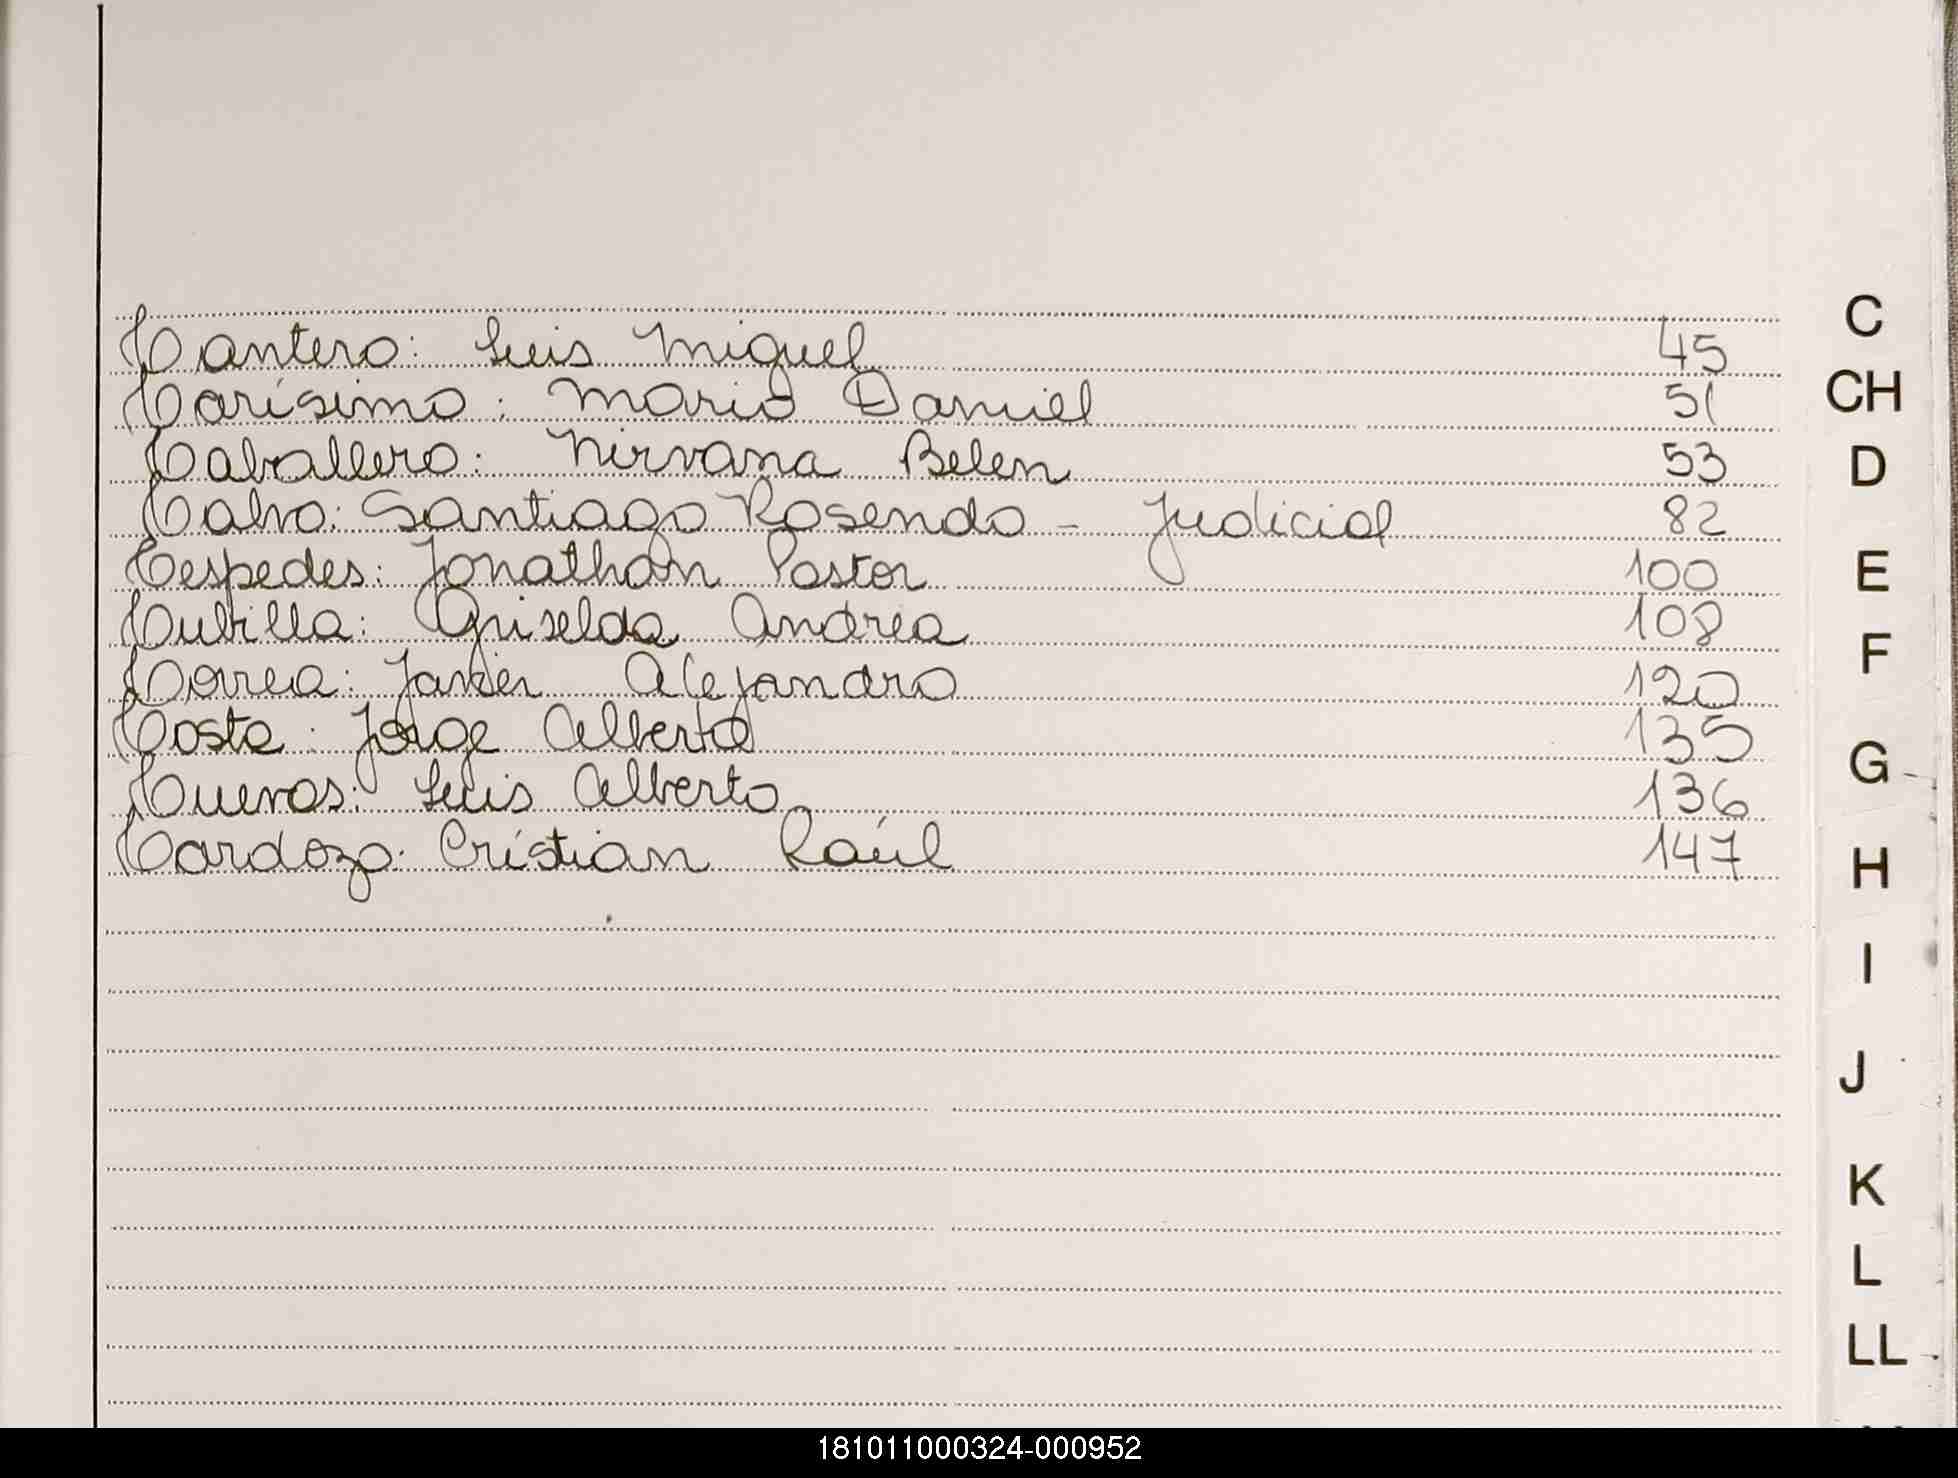 Cantero: Luis Miguel 45
Carísimo: Mario Daniel 51
Caballero: Nirvana Belen 53
Calvo: Santiago Rosendo - Judicial 82
Cespedes: Jonathan Pastor 100
Cubilla: Griselda Andrea 108
Correa: Javier Alejandro 120
Costa: Jorge Alberto 135
Cuevas: Luis Alberto 136
Cardozo: Cristian Raúl 147
C
CH
D
E
F
G
H
I
J
K
L
LL
181011000324-000952